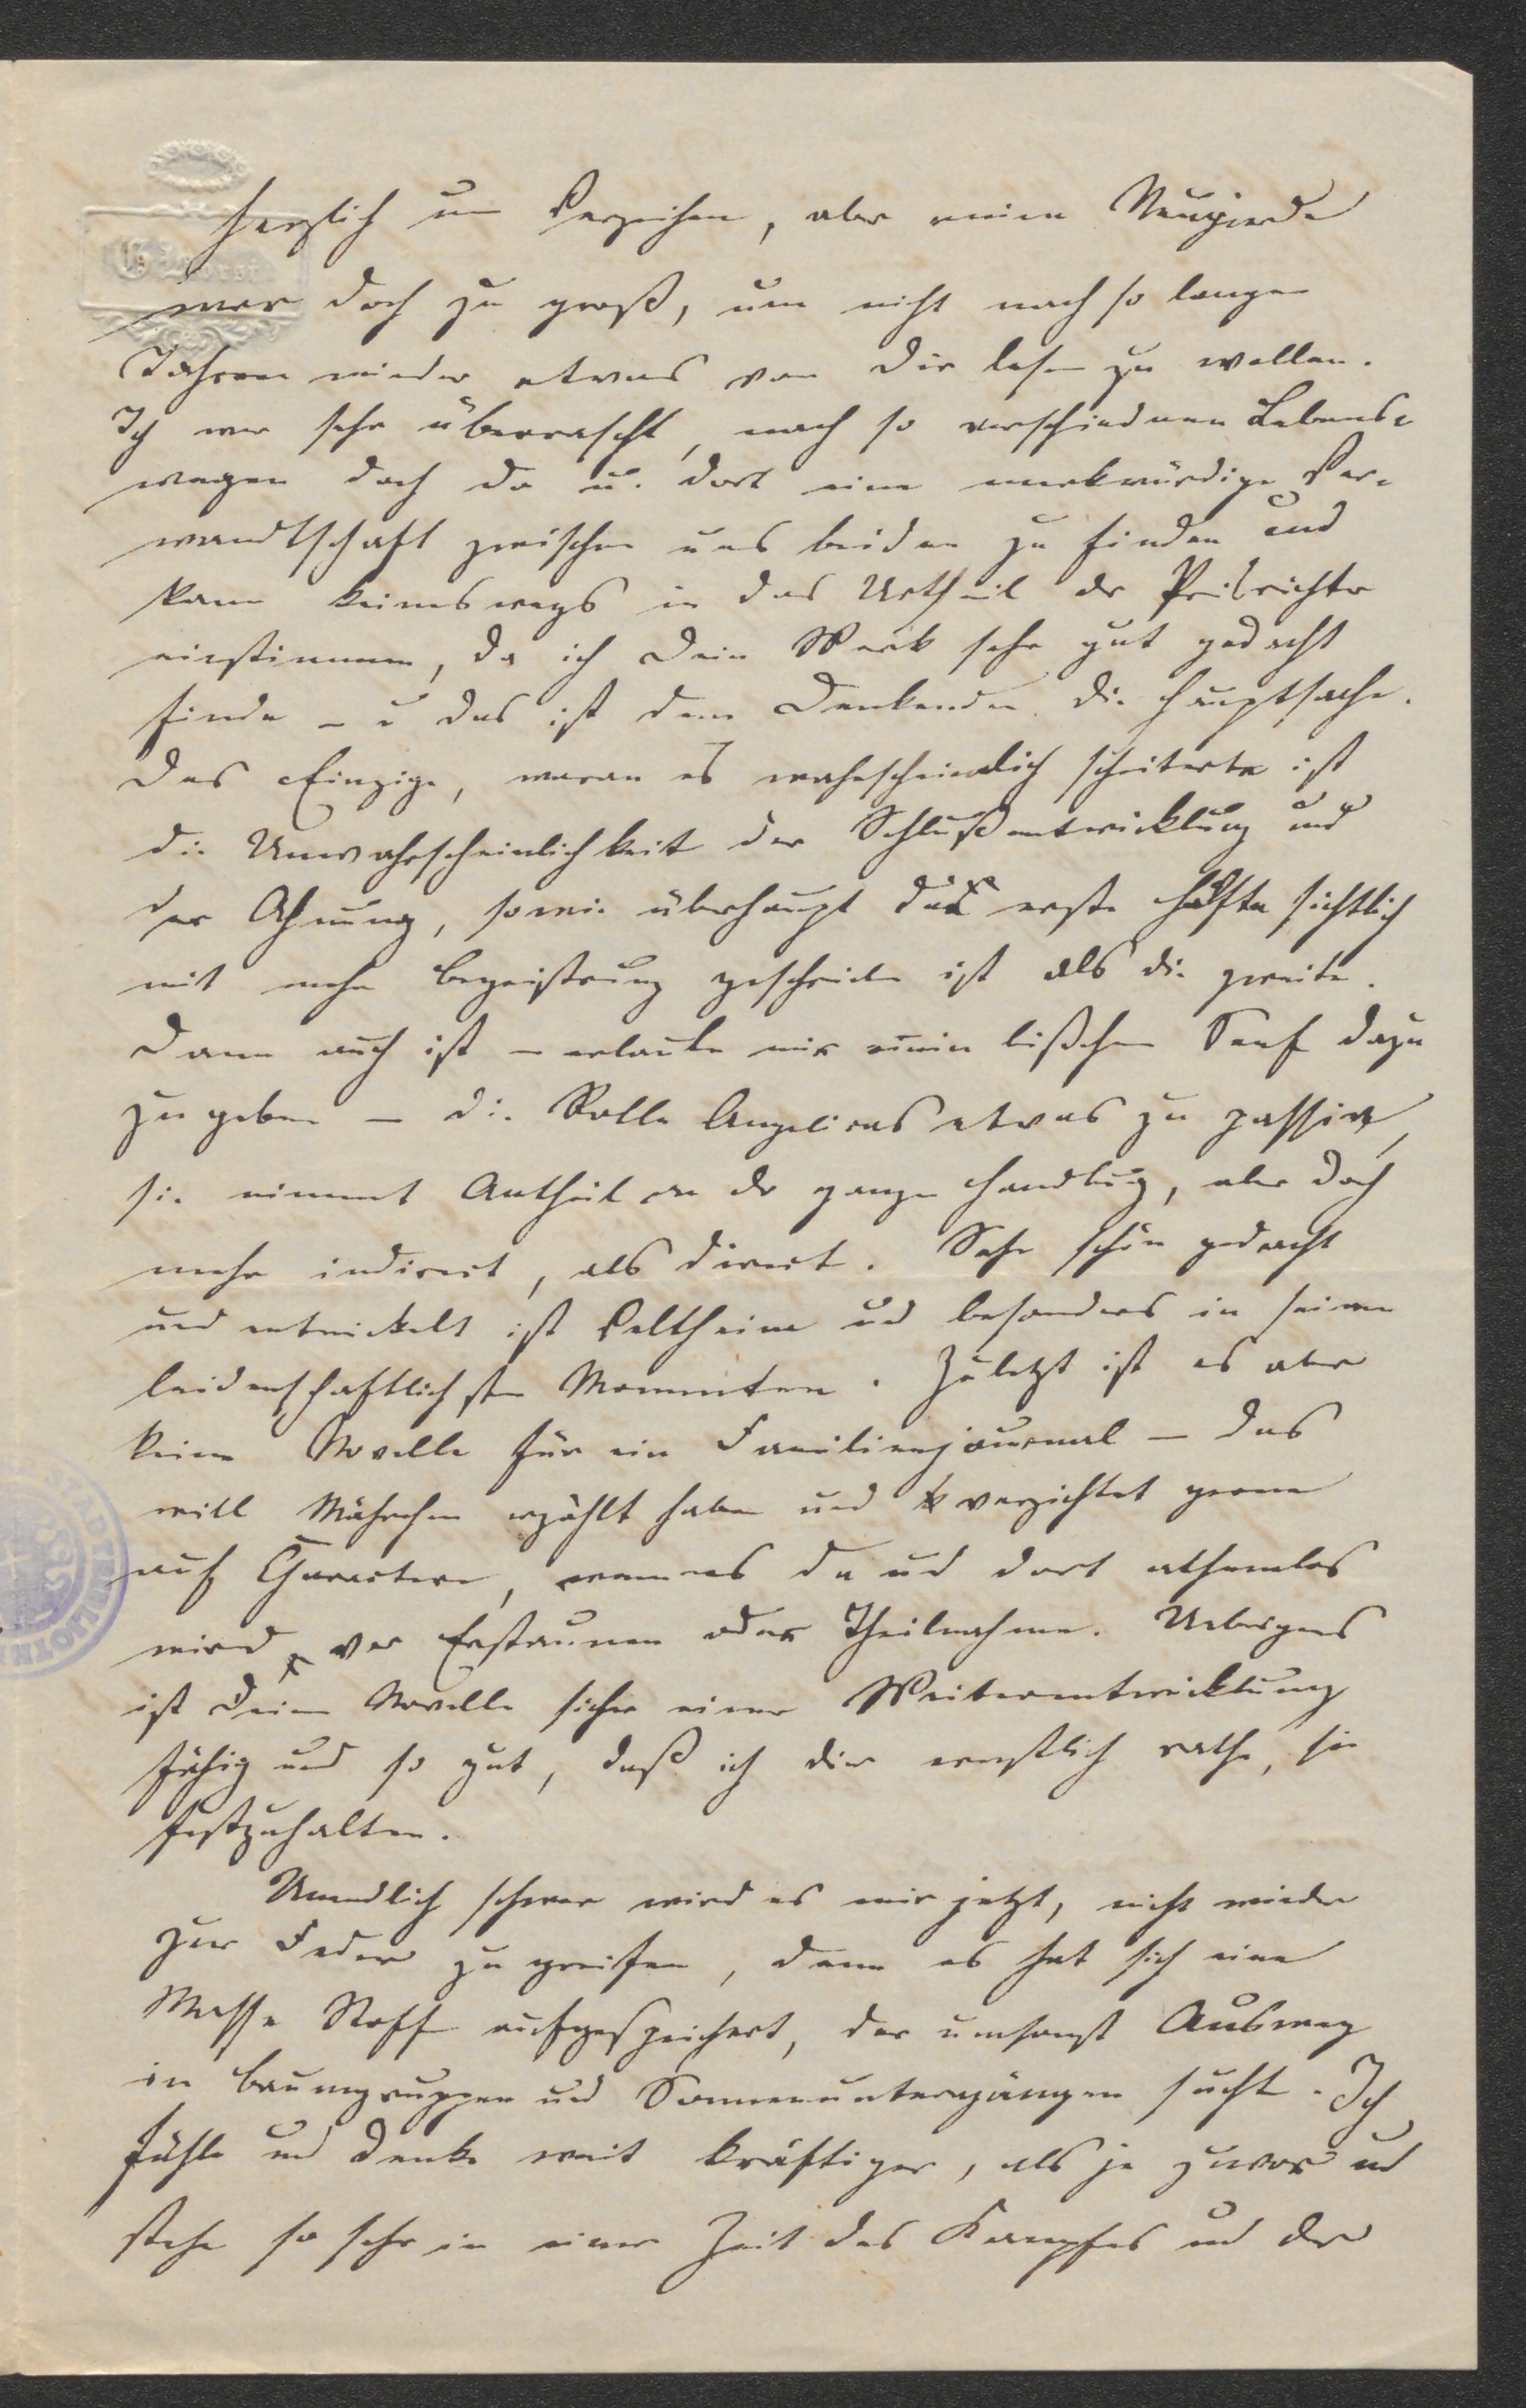 herzlich um Verzeihen, aber meine Neugierde
war doch zu groß, um nicht nach so langen
Jahren wieder etwas von Dir lesen zu wollen.
Ich war sehr überrascht, nach so verschiednen Lebens-
wegen doch da u. dort eine merkwürdige Ver-
wandtschaft zwischen uns beiden zu finden und
kann keineswegs in das Urtheil der Preisrichter
einstimmen, da ich Dein Werk sehr gut gedacht
finde – u das ist dem Denkenden die Hauptsache.
Das Einzige, woran es wahrscheinlich scheiterte ist
die Unwahrscheinlichkeit der Schlußentwicklung und
der Ahnung, sowie überhaupt das erste Hälfte sichtlich
mit mehr Begeistrung geschrieben ist als die zweite.
Dann auch ist – erlaube mir mein bißchen Senf dazu
zu geben – die Rolle Angelicas etwas zu passiv,
sie nimmt Antheil an der ganzen Handlung, aber doch
mehr indirect, als direct. Sehr schön gedacht
und entwickelt ist Veltheim und besonders in seinen
leidenschaftlichsten Momenten. Zuletzt ist es aber
keine Novelle für ein Familienjournal – das
will Mährchen erzählt haben und verzichtet gerne
auf Charactere, wenn es da und dort athemlos
wird vor Erstaunen oder Theilnahme. Uebrigens
ist Deine Novelle sicher einer Weiterentwicklung
fähig und so gut, daß ich dir ernstlich rathe, sie
festzuhalten.
Unendlich schwer wird es mir jetzt, nicht wieder
zur Feder zu greifen, denn es hat sich eine
Masse Stoff aufgespeichert, der umsonst Ausweg
in Baumgruppen und Sonnenuntergängen sucht. Ich
fühle und denke weit kräftiger, als je zuvor und
stehe so sehr in einer Zeit des Kampfes und der